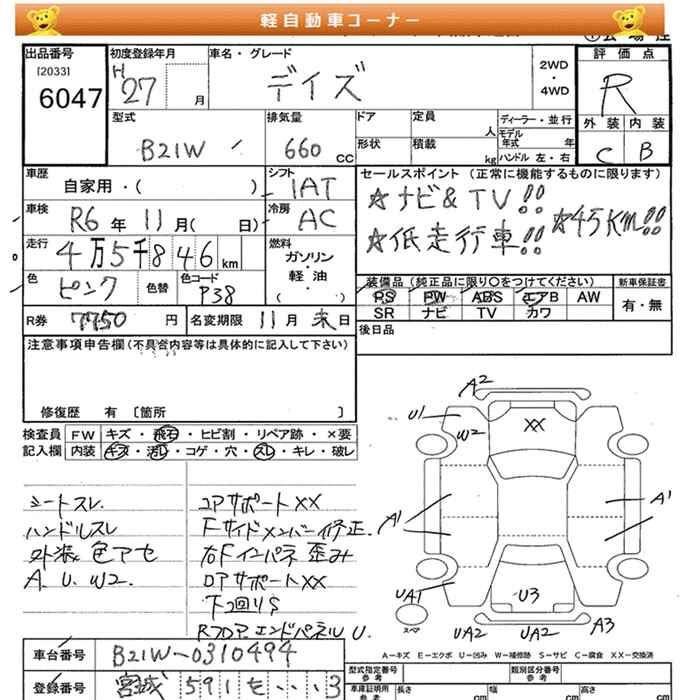 軽自動車コーナー
出品番号
[2033]
6047
初度登録年月
H27 月
車名・グレード
デイズ
2WD
・
4WD
評価点
R
外装 内装
C B
型式
B21W
排気量
660 CC
ドア
定員
人
形状
積載
kg
ディーラー・並行
モデル
年式 年
ハンドル 左・右
車歴
自家用・( )
シフト
IAT
セールスポイント (正常に機能するものに限ります)
☆ナビ&TV!!
☆低走行車!!
☆45KM!!
車検
R6年 11月( 日)
冷房
AC
走行
4万5千846km
燃料
ガソリン
軽・油
・
( )
色
ピンク
色替
色コード
P38
装備品 (純正品に限り〇をつけてください)
新車保証書
PS PW ABS エアB AW
SR ナビ TV カワ
有・無
R券
7750円
名変期限
11月末日
後日品
注意事項申告欄 (不具合内容等は具体的に記入して下さい)
修復歴 有 〔箇所 〕
検査員
記入欄
FW キズ・飛石・ヒビ割・リペア跡・×要
内装 キズ・汚レ・コゲ・穴・スレ・キレ・破レ
シートスレ
ハンドルスレ
外装色アセ
A.U.W2.
コアサポートXX
Fサイドメンバー修正.
右Fインパネ歪み
ロアサポートXX
下回りS
Rフロアエンドパネル U.
A2
U1
W2
XX
A1
A1
UA1
スペア
U3
UA2
UA2
A3
A-キズ E-エクボ U-凹み W-補修跡 S-サビ C-腐食 XX-交換済
車台番号
B21W-0310494
登録番号
宮城 591 を ・・・3
型式指定番号
参考
類別区分番号
参考
車庫証明用
参考
長さ
cm
幅
cm
高さ
cm